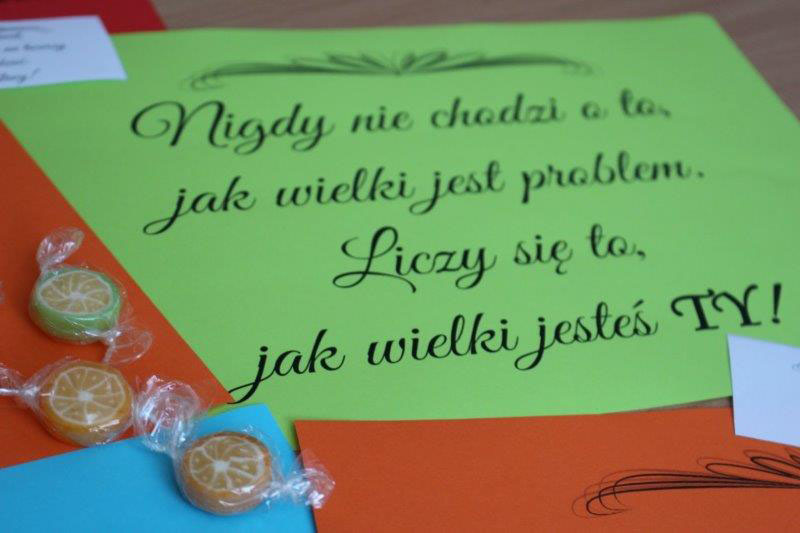 Nigdy nie chodzi o to,
jak wielki jest problem.
Liczy się to,
jak wielki jesteś TY!